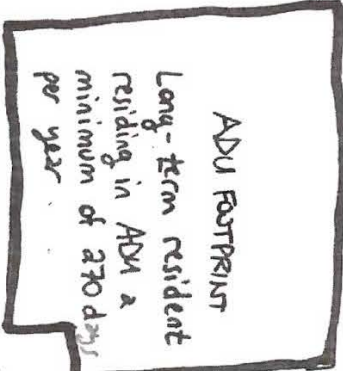 ADU FOOTPRINT
Long-term resident
residing in ADU a
minimum of 270 days
per year.